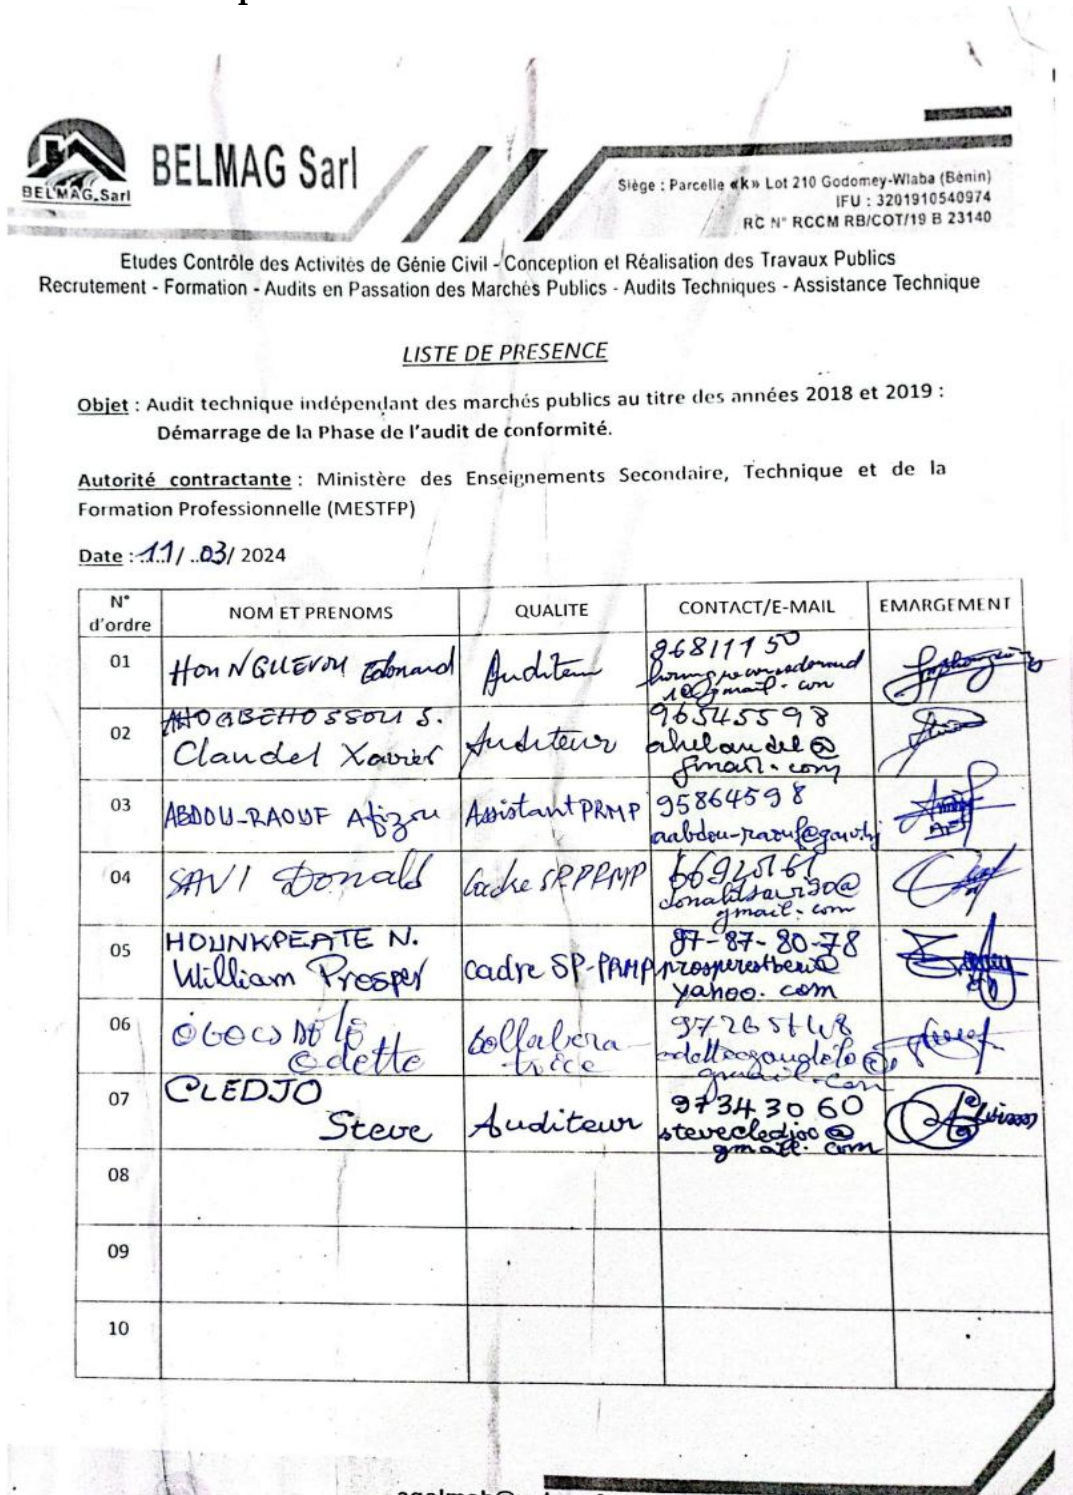 BELMAG Sarl
BELMAG Sarl
Siège : Parcelle «k» Lot 210 Godomey-Wlaba (Bénin)
IFU : 3201910540974
RC N° RCCM RB/COT/19 B 23140
Etudes Contrôle des Activités de Génie Civil - Conception et Réalisation des Travaux Publics
Recrutement - Formation - Audits en Passation des Marchés Publics - Audits Techniques - Assistance Technique
LISTE DE PRESENCE
Objet : Audit technique indépendant des marchés publics au titre des années 2018 et 2019 :
Démarrage de la Phase de l'audit de conformité.
Autorité contractante : Ministère des Enseignements Secondaire, Technique et de la
Formation Professionnelle (MESTFP)
Date : 11/ 03/ 2024
N° d'ordre NOM ET PRENOMS QUALITE CONTACT/E-MAIL EMARGEMENT
01 Edouard Auditeur
02 AHOGBEHOSSOU S. Auditeur 96545598
Claudel Xavier ahclaudel@
gmail.com
03 ABDOU-RAOUF Afizou Assistant PRMP 95864598
aabdou-raouf@gouv.bj
04 SAVI Donald Cadre SP PRMP
gmail.com
05 HOUNKPEATE N. cadre SP-PRMP 97-87-80-78
William Prosper
yahoo.com
06
Odette
gmail.com
07 CLEDJO Auditeur 97343060
Steve stevecledjoo@
gmail.com
08
09
10